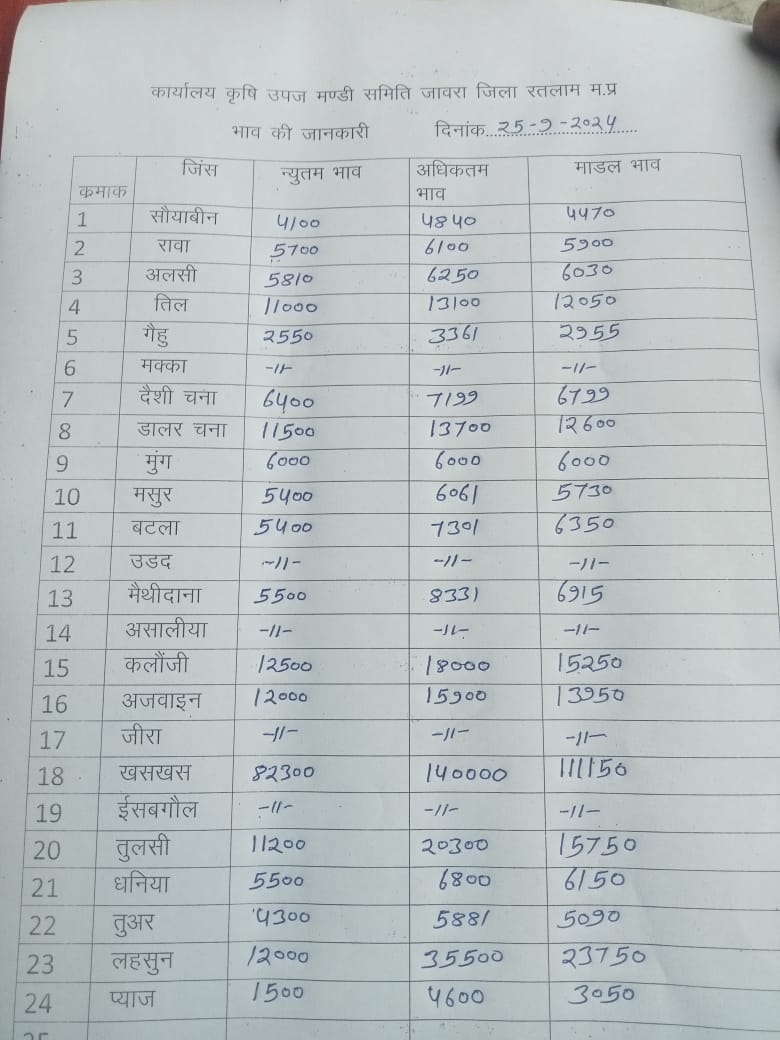 कार्यालय कृषि उपज मण्डी समिति जावरा जिला रतलाम म.प्र
भाव की जानकारी दिनांक..25-9-2024
कमाक जिंस न्युतम भाव अधिकतम भाव माडल भाव
1 सौयाबीन 4100 4840 4470
2 रावा 5700 6100 5900
3 अलसी 5810 6250 6030
4 तिल 11000 13100 12050
5 गैहु 2550 3361 2955
6 मक्का -11- -11- -11-
7 दैशी चना 6400 7199 6799
8 डालर चना 11500 13700 12600
9 मुंग 6000 6000 6000
10 मसुर 5400 6061 5730
11 बटला 5400 7301 6350
12 उडद -11- -11- -11-
13 मैथीदाना 5500 8331 6915
14 असालीया -11- -11- -11-
15 कलौंजी 12500 18000 15250
16 अजवाइन 12000 15900 13950
17 जीरा -11- -11- -11-
18 खसखस 82300 140000 111150
19 ईसबगौल -11- -11- -11-
20 तुलसी 11200 20300 15750
21 धनिया 5500 6800 6150
22 तुअर 4300 5881 5090
23 लहसुन 12000 35500 23750
24 प्याज 1500 4600 3050